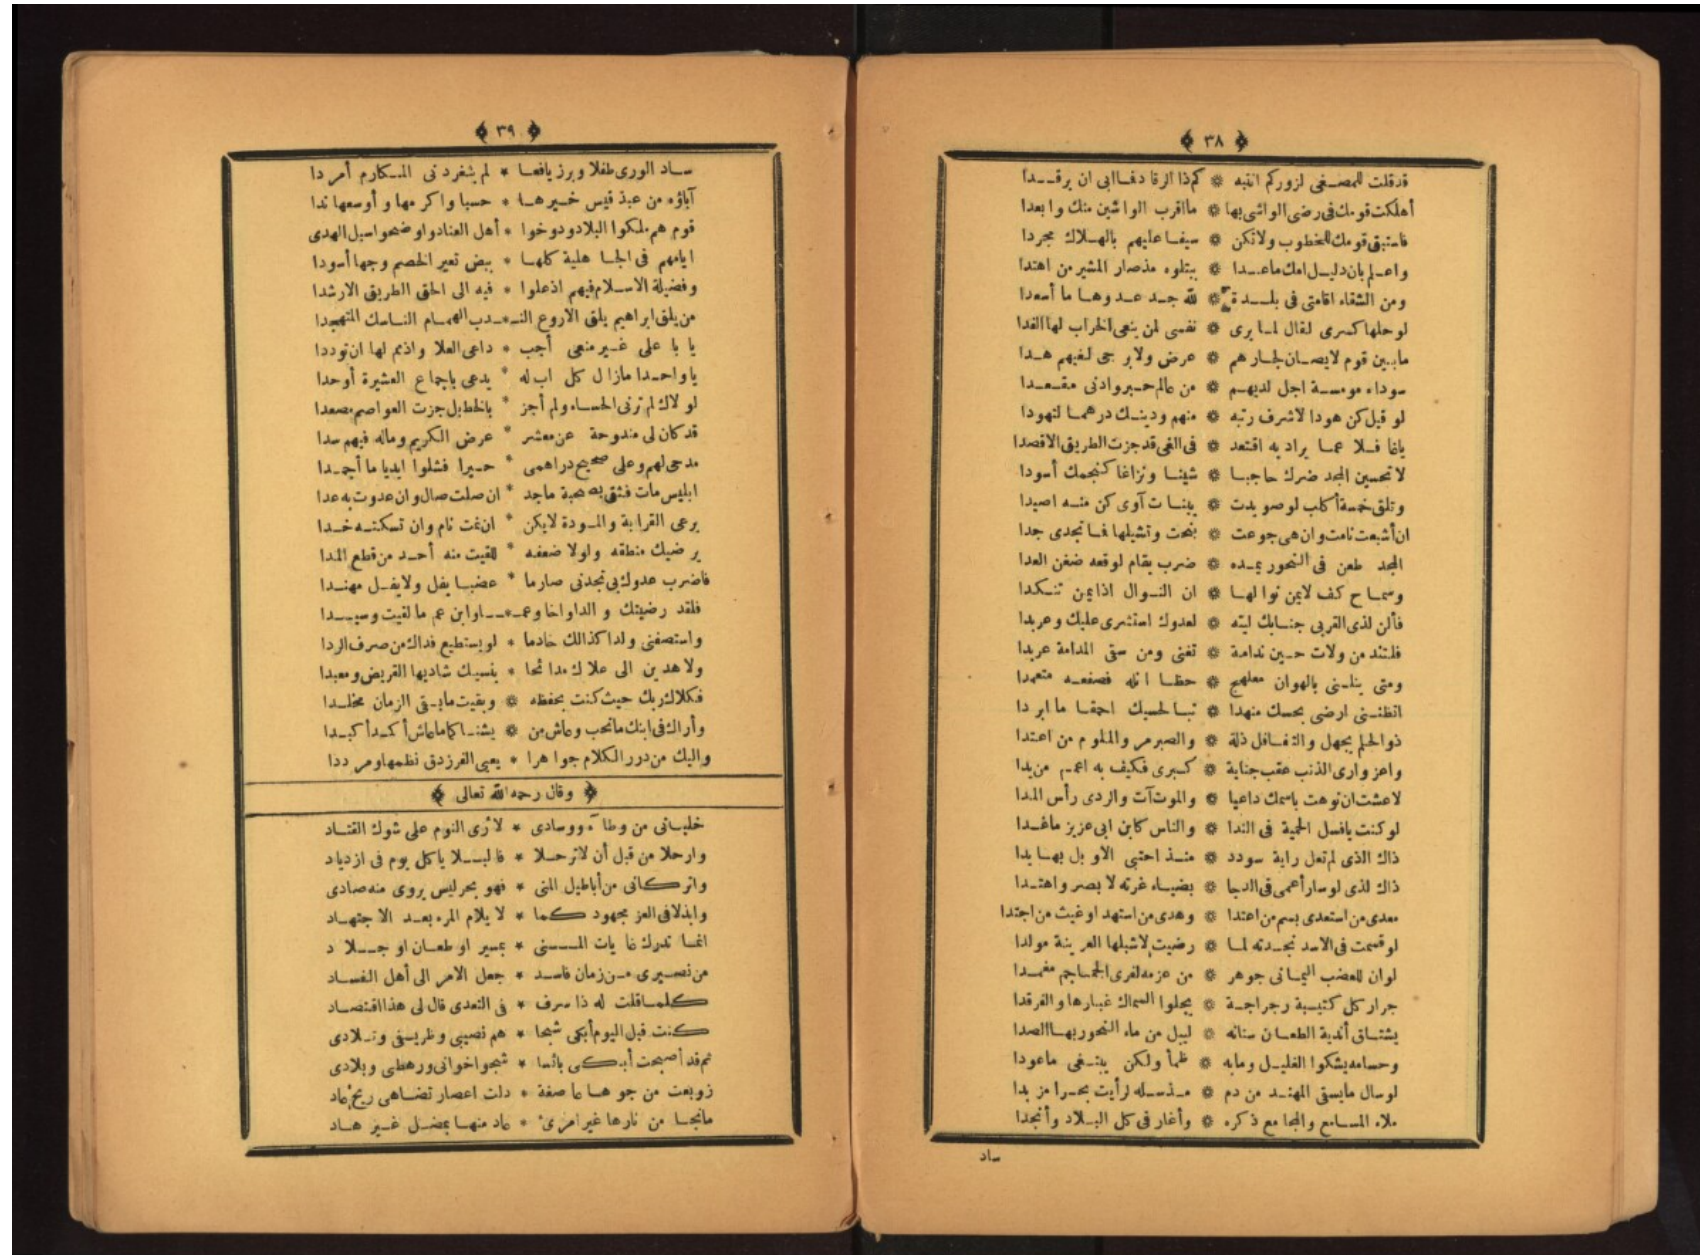 ﴿ ٣٨ ﴾
قد قلت للمصغى لزوركم انتبه ۞ كم ذا الرقاد فما ابى ان يرقدا
أهلكت قومك فى رضى الواشى بها ۞ ما اقرب الواشين منك وابعدا
فاستبق قومك للخطوب ولا تكن ۞ سيفا عليهم بالهلاك مجردا
واعلم بان دليل امك ماعدا ۞ يتلوه مذصار المشير من اهتدا
ومن الشقاء اقامتى فى بلدة ۞ لله جد عدوها ما أسعدا
لو حلها كسرى لقال لما يرى ۞ نفسى لمن ينعى الخراب لها الفدا
مابين قوم لايصان لجارهم ۞ عرض ولا يرجى لغيهم هدا
سوداء مومسة اجل لديهم ۞ من عالم حبر وادنى مقعدا
لو قيل كن هودا لاشرف رتبه ۞ منهم ودينك درهما لتهودا
ياغافلا عما يراد به اقتعد ۞ فى الغى قد جزت الطريق الاقصدا
لا تحسبن المجد ضرك حاجبا ۞ شينا ونزاغا كنجمك أسودا
وتلق خمسة أكلب لو صويدت ۞ ببنات آوى كن منه اصيدا
ان أشبعت نامت وان هى جوعت ۞ نبحت وتشبلها فما تجدى جدا
المجد طعن فى النحور يمده ۞ ضرب يقام لوقعه ضغن العدا
وسماح كف لايمن نوالها ۞ ان النوال اذا يمن تنكدا
فألن لذى القربى جنابك ليته ۞ لعدوك استشرى عليك وعربدا
فلتند من ولات حين ندامة ۞ تغنى ومن سقى المدامة عربدا
ومتى ينلنى بالهوان معلهج ۞ حظا انله فصفعه متعمدا
اتظننى ارضى بحسك منهدا ۞ تبا لحسبك احمقا ما ابردا
ذو الحلم يجهل والتغافل ذلة ۞ والصبر مر والملوم من اعتدا
واعز وارى الذنب عقب جناية ۞ كبرى فكيف به اعمم من بدا
لاعشت ان نوهت باسمك داعيا ۞ والموت آت والردى رأس المدا
لو كنت يافسل الحمية فى الندا ۞ والناس كابن ابى عزيز ماغدا
ذاك الذى لم تعل راية سودد ۞ منذ احتبى الا وبل بها يدا
ذاك لذى لو سار أعمى فى الدجا ۞ بضياء غرته لا بصر واهتدا
معدى من استعدى بسم من اعتدا ۞ وهدى من استهدا وغيث من اجتدا
لو قسمت فى الاسد نجدته لما ۞ رضيت لاشبلها العرينة مولدا
لوان للعضب اليمانى جوهر ۞ من عزمه لفرى الجماجم مغمدا
جرار كل كتيبة رجراجة ۞ يجلوا السماك غبارها والفرقدا
يشتاق أندية الطعان سنانه ۞ ليبل من ماء النحور بها الصدا
وحسامه يشكوا الغليل ومابه ۞ ظمأ ولكن يبتغى ماعودا
لو سال مايسقى المهند من دم ۞ منذسله لرأيت بحرا مزبدا
ملاء المسامع والمجامع ذكره ۞ وأغار فى كل البلاد وأنجدا
ساد
﴿ ٣٩ ﴾
ساد الورى طفلا وبرز يافعا * لم يثغردنى المكارم أمردا
آباؤه من عبد قيس خيرها * حسبا واكرمها وأوسعها ندا
قوم هم ملكوا البلاد ودوخوا * أهل العناد واوضحوا سبل الهدى
ايامهم فى الجاهلية كلها * بيض تعير الخصم وجها أسودا
وفضيلة الاسلام فيهم اذ علوا * فيه الى الحق الطريق الارشدا
من يلق ابراهيم يلق الاروع النـ*ـدب الهمام الناسك المتهجدا
يا با على غير منعى أجب * داعى العلا واذمم لها ان توددا
ياواحدا مازال كل اب له * يدعى باجماع العشيرة أوحدا
لولاك لم ترنى الحساء ولم أجز * بالخط بل جزت العواصم مصعدا
قد كان لى مندوحة عن معشر * عرض الكريم وماله فيهم سدا
مدحى لهم وعلى صحيح دراهمى * حبرا فشلوا ايديا ما أجمدا
ابليس مات فثق به صحبة ماجد * ان صلت صال وان عدوت به عدا
يرعى القرابة والمودة لايكن * ان نمت نام وان تسكنه خدا
يرضيك منطقه ولولا ضعفه * للقيت منه أحد من قطع المدا
فاضرب عدوك بى تجدنى صارما * عضبا يفل ولايفل مهندا
فلقد رضيتك والدا واخا وعمـ*ـا وابن عم مالقيت وسيدا
واستصفنى ولدا كذالك خادما * لو يستطيع فداك من صرف الردا
ولاهدين الى علاك مدائحا * ينسيك شاديها القريض ومعبدا
فكلاك ربك حيث كنت بحفظه ۞ وبقيت مابقى الزمان مخلدا
وأراك فى ابنك ماتحب وعاش من ۞ يشناكما ماعاش أكمدا كبدا
واليك من درر الكلام جواهرا * يعيى الفرزدق نظمها ومرددا
﴿ وقال رحمه الله تعالى ﴾
خليانى من وطاء ووسادى * لا أرى النوم على شوك القتاد
وارحلا من قبل أن لاترحلا * فالبلايا كل يوم فى ازدياد
واتركانى من أباطيل المنى * فهو بحر ليس يروى منه صادى
وابذلا فى العز مجهودكما * لا يلام المرء بعد الاجتهاد
انما تدرك غايات المنى * بمسير او طعان او جلاد
من نصيرى من زمان فاسد * جعل الامر الى أهل الفساد
كلما قلت له ذا سرف * فى التعدى قال لى هذا اقتصاد
كنت قبل اليوم أبكى شجا * هم نصيبى وظريفى وتلادى
ثم قد أصبحت أبكى بائسا * شجو اخوانى ورهطى وبلادى
زوبعت من جوها عاصفة * دلت اعصار تضاهى ريح عاد
مانجا من نارها غير امرئ * عاد منها بمضل غير هاد